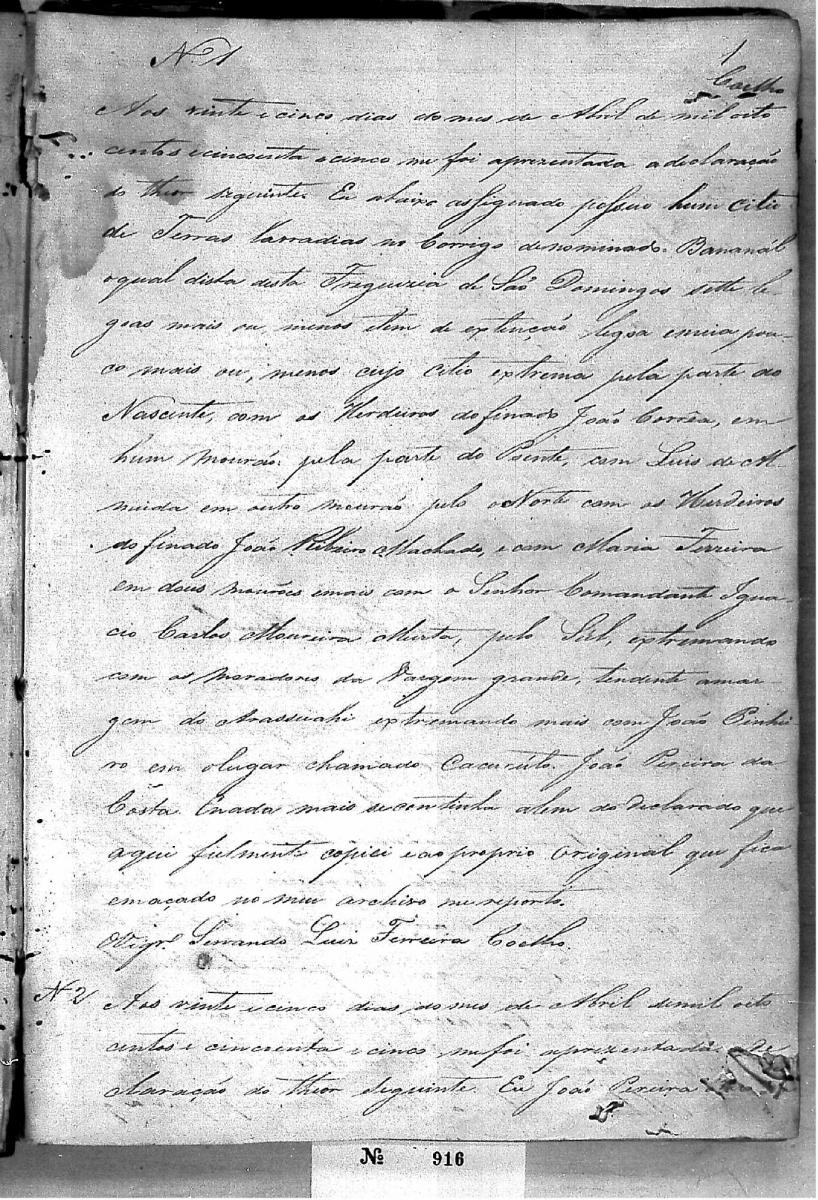 N 1
1
Coelho
Aos vinte e cinco dias do mes de Abril de mil oito
centos e cincoenta e cinco me foi aprezentada a declaração
do theor seguinte. Eu abaixo assignado possuo hum citio
de Terras Lavradias no Corrigo denominado Bananál
o qual dista desta Freguizia de São Domingos sette le
goas mais ou, menos e tem de extenção legoa e meia pou-
co mais ou, menos cujo citio extrema pela parte do
Nascente, com os Herdeiros do finado João Corrêa, em
hum mourão, pela parte do Poente, com Luis de Al-
meida em outro mourão pelo o Norte com os Herdeiros
do finado João Ribeiro Machado, e com Maria Ferreira
em dous mourões e mais com o Senhor Comandante Igna-
cio Carlos Moureira Murta, pelo Sul, extremando
com os moradores da Vargem grande, tendente a mar-
gem do Arassuahi extremando mais com João Pinhei
ro em o lugar chamado Cacuruto. João Pereira da
Costa. E nada mais se continha alem do declarado que
aqui fielmente copiei e ao proprio Original que fica
emaçado no meu archivo me reporto.
O Vigr.º Serrando Luiz Ferreira Coelho.
N 2 Aos vinte e cinco dias do mes de Abril de mil oito
centos e cincoenta e cinco me foi aprezentada de
claração do theor seguinte. Eu João Pereira
Nº 916